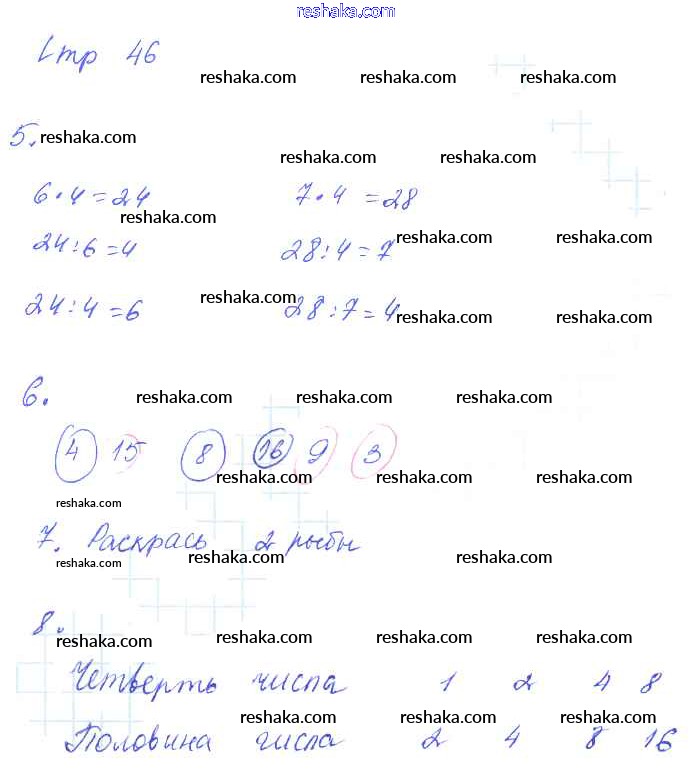 reshaka.com
Стр 46
reshaka.com reshaka.com reshaka.com
5. reshaka.com
reshaka.com reshaka.com
6·4=24 7·4=28
reshaka.com
reshaka.com reshaka.com
24:6=4 28:4=7
reshaka.com
24:4=6 28:7=4
reshaka.com reshaka.com
6. reshaka.com reshaka.com reshaka.com
4 15 8 16 9 3
reshaka.com reshaka.com reshaka.com
reshaka.com
7. Раскрась 2 рыбы
reshaka.com reshaka.com reshaka.com reshaka.com
8.
reshaka.com reshaka.com reshaka.com reshaka.com
Четверть числа 1 2 4 8
reshaka.com reshaka.com reshaka.com
Половина числа 2 4 8 16